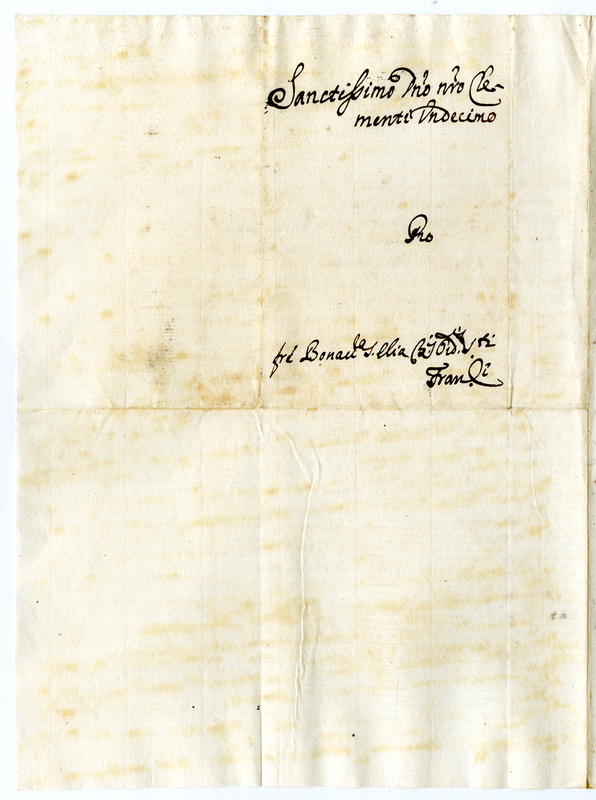 Sanctissimo Dno nro Cle-
menti Undecimo
Pro
fre Bonadᵃ S. Elia Ord. Sᵗⁱ
Franᶜⁱ